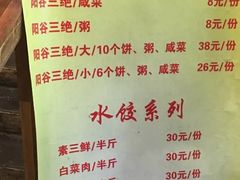 阳谷三绝/咸菜 8元/份
阳谷三绝/粥 8元/份
阳谷三绝/大/10个饼、粥、咸菜 38元/份
阳谷三绝/小/6个饼、粥、咸菜 26元/份
水饺系列
素三鲜/半斤 30元/份
白菜肉/半斤 30元/份
30元/份